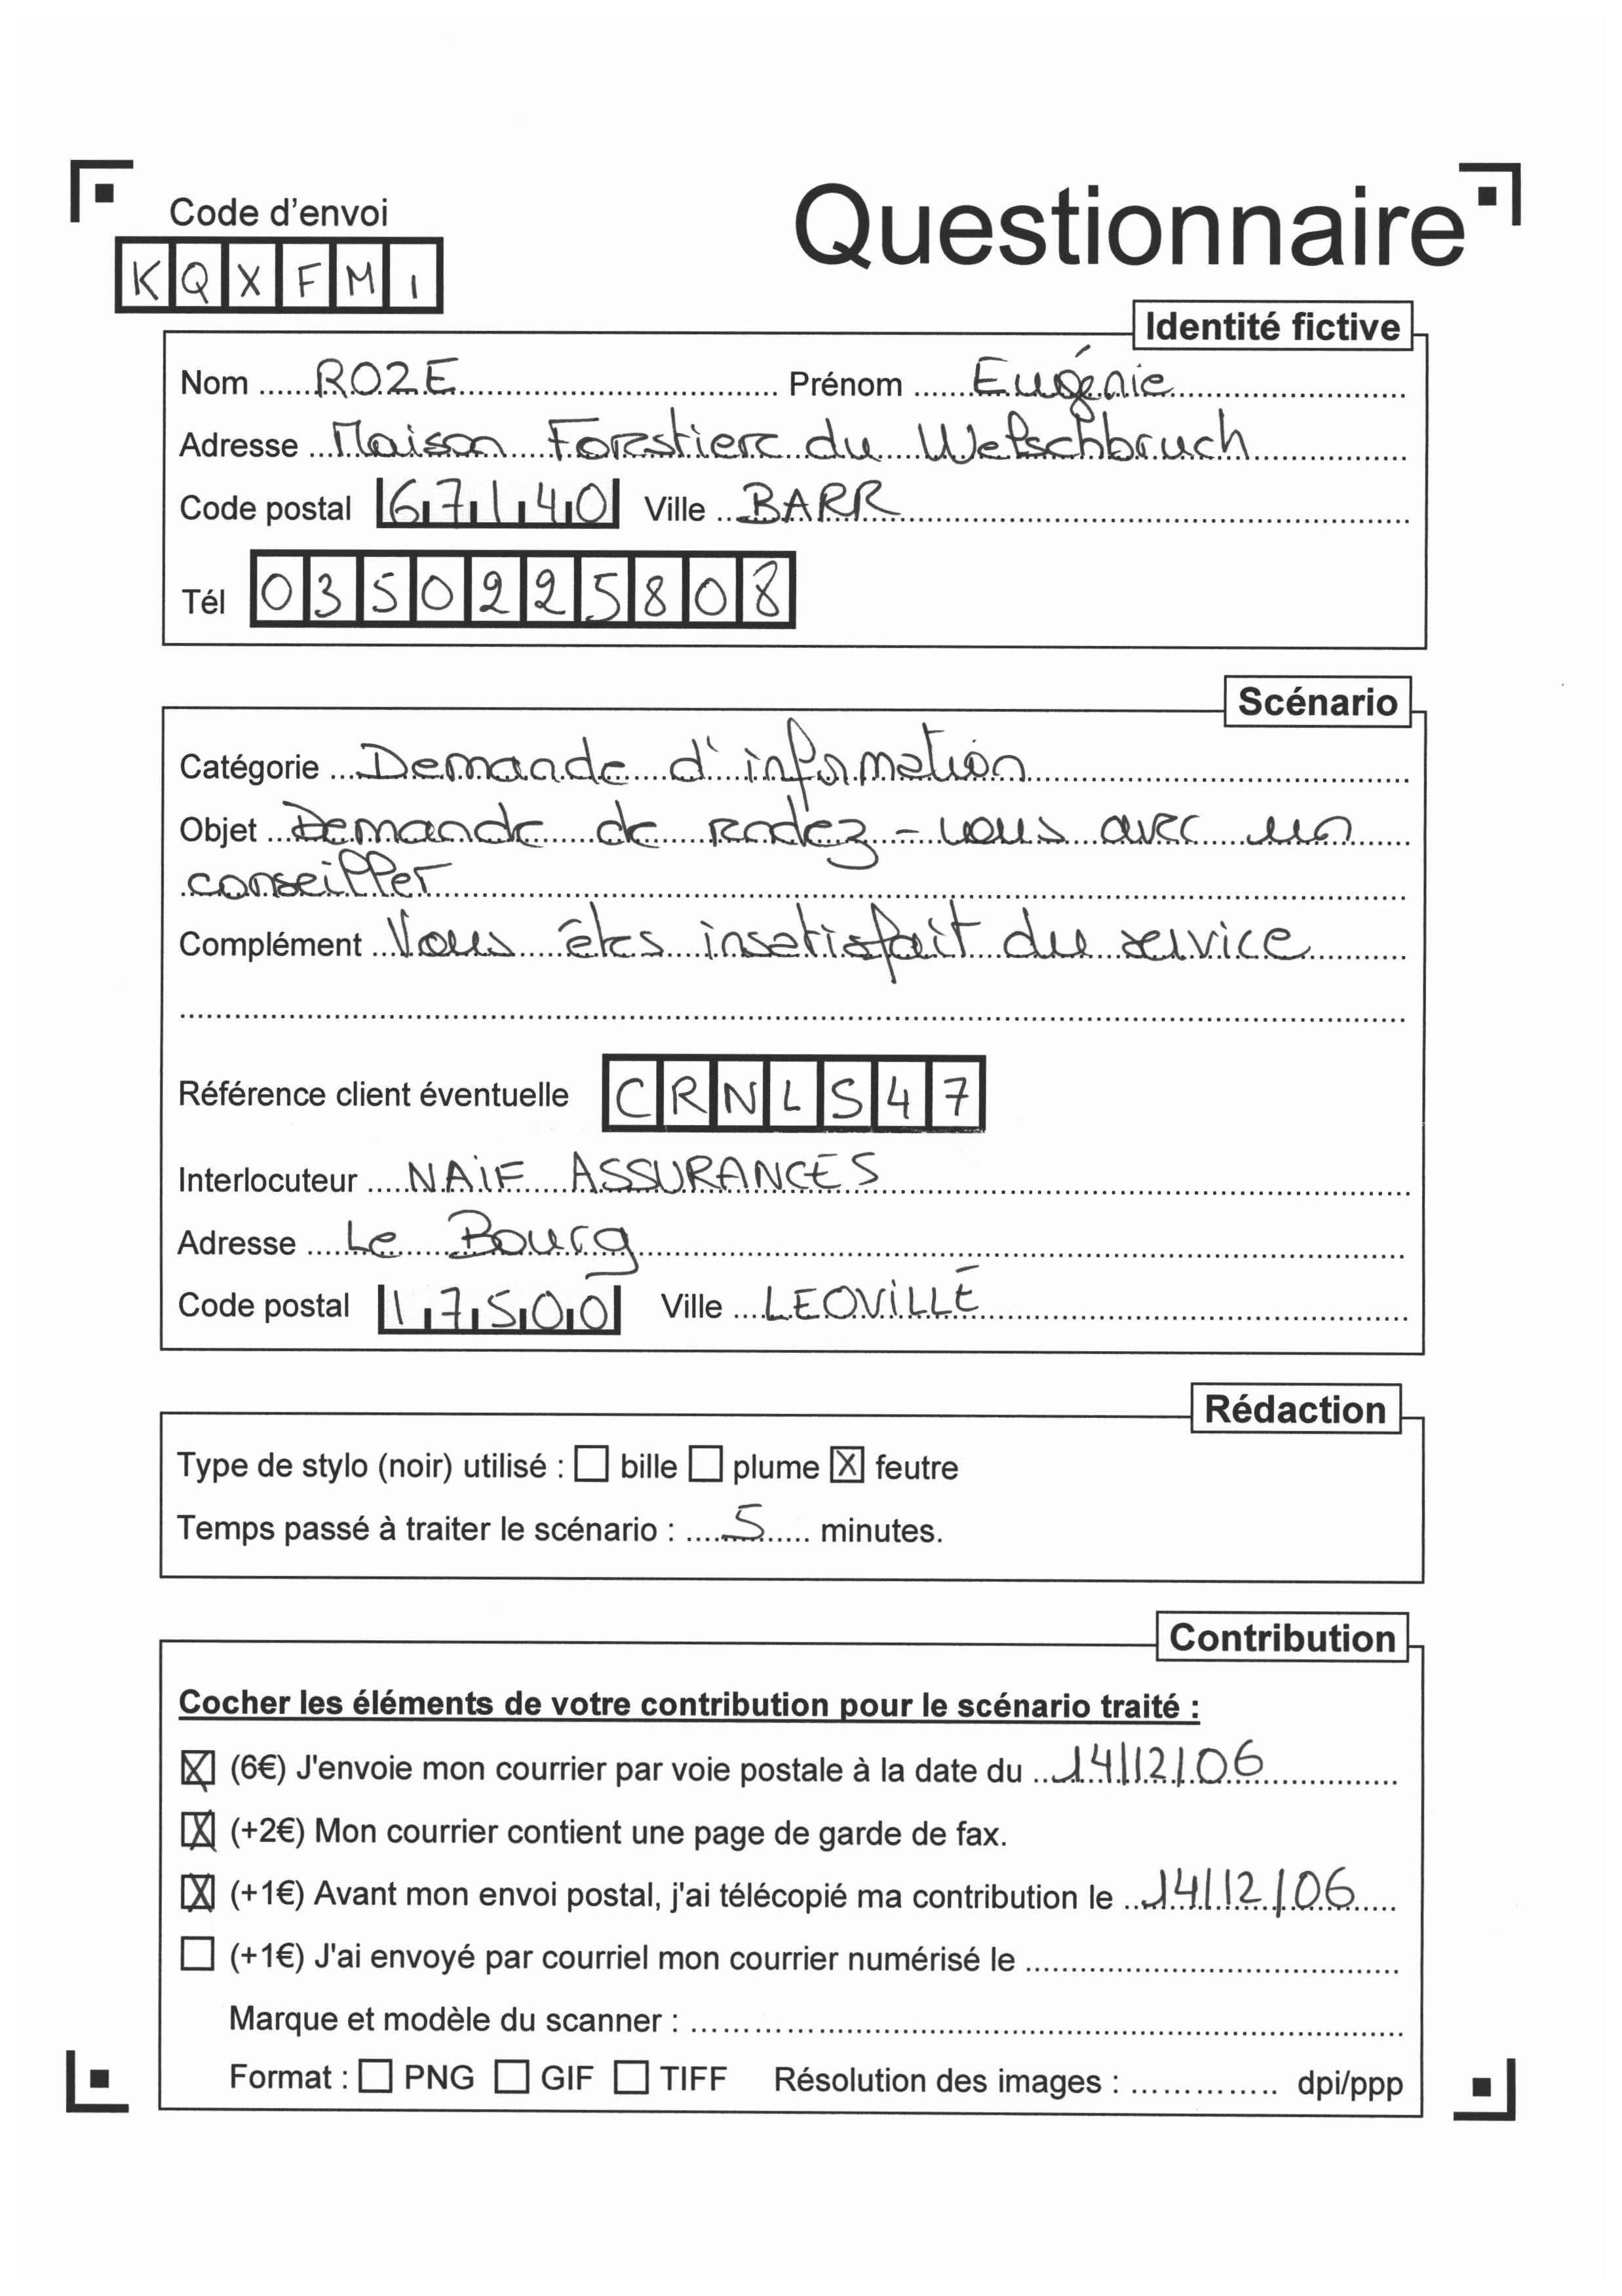 Code d'envoi
Questionnaire
KQXFM1
Identité fictive
Nom ROZE Prénom Eugénie
Adresse Maison Forestiere du Welschbruch
Code postal 67140 Ville BARR
Tél 0350225808
Scénario
Catégorie Demande d'information
Objet Demande de rendez-vous avec un
conseiller
Complément Vous êtes insatisfait du service
Référence client éventuelle CRNLS47
Interlocuteur NAIF ASSURANCES
Adresse Le Bourg
Code postal 17500 Ville LEOVILLÉ
Rédaction
Type de stylo (noir) utilisé : ☐ bille ☐ plume ☒ feutre
Temps passé à traiter le scénario : 5 minutes.
Contribution
Cocher les éléments de votre contribution pour le scénario traité :
☒ (6€) J'envoie mon courrier par voie postale à la date du 14/12/06
☒ (+2€) Mon courrier contient une page de garde de fax.
☒ (+1€) Avant mon envoi postal, j'ai télécopié ma contribution le 14/12/06
☐ (+1€) J'ai envoyé par courriel mon courrier numérisé le
Marque et modèle du scanner :
Format : ☐ PNG ☐ GIF ☐ TIFF Résolution des images : dpi/ppp